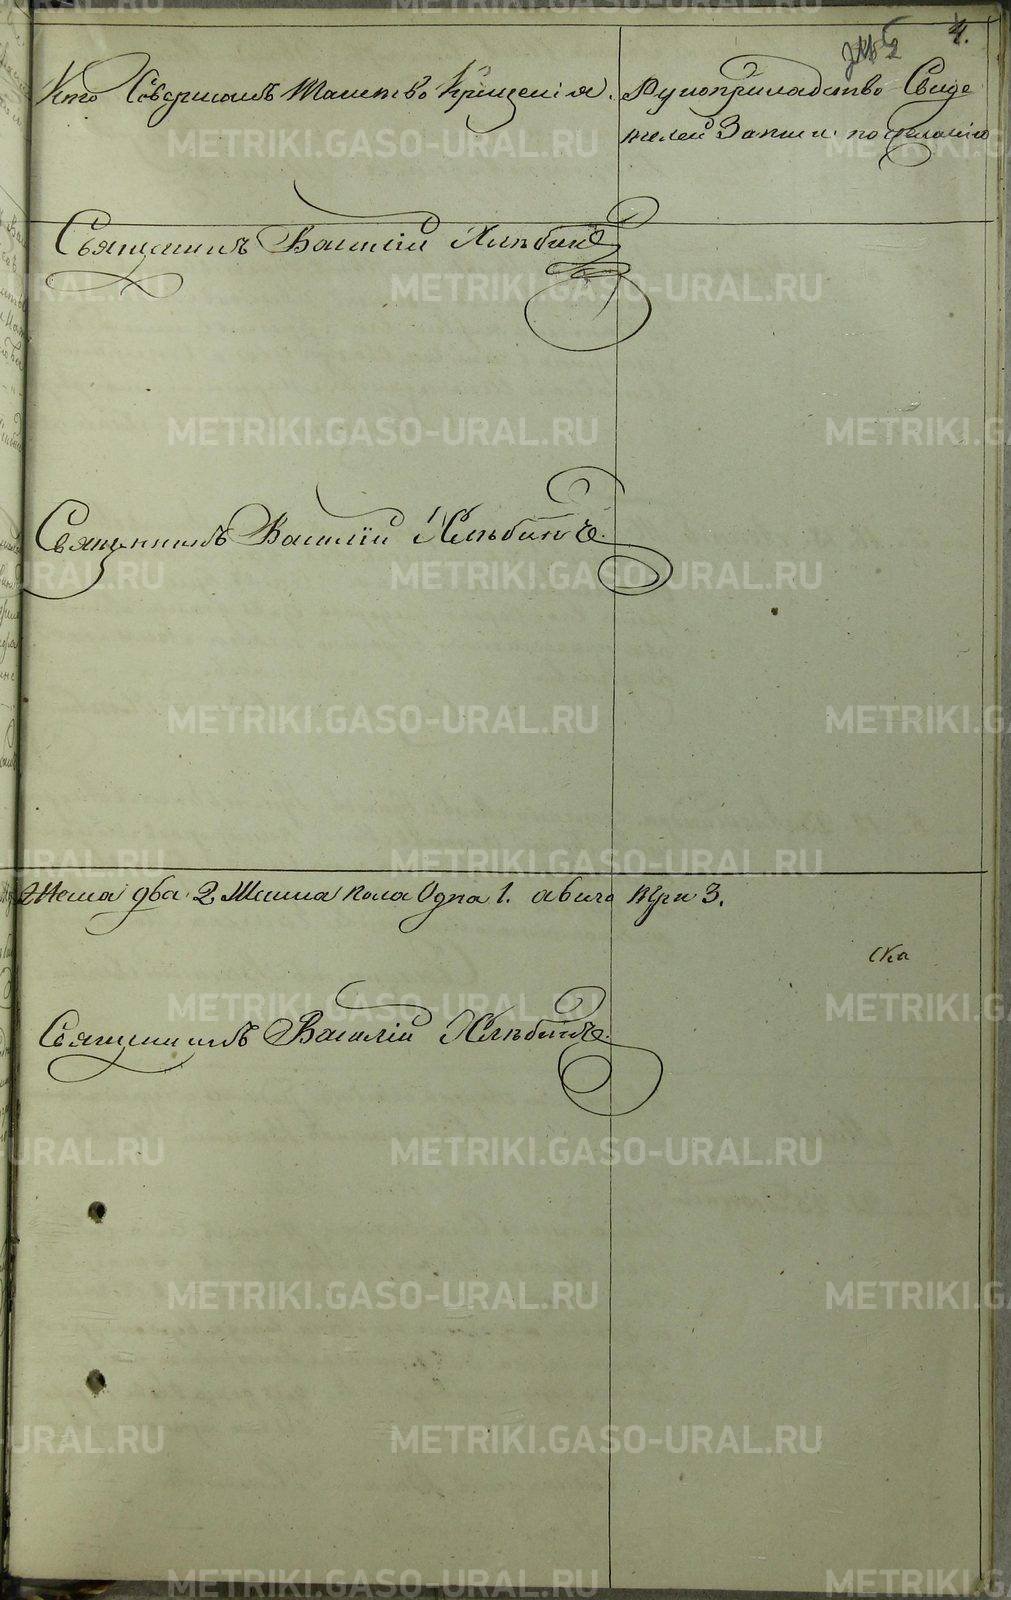 4.
Кто Совершалъ Таинство Крещенія.
Рукоприкладство Свиде
телей Записи по желанію
Священникъ Василій Хлѣбинъ
Священникъ Василій Хлѣбинъ.
пола два 2. Женска пола Одна 1. а всего три 3.
Священникъ Василій Хлѣбинъ.
METRIKI.GASO-URAL.RU